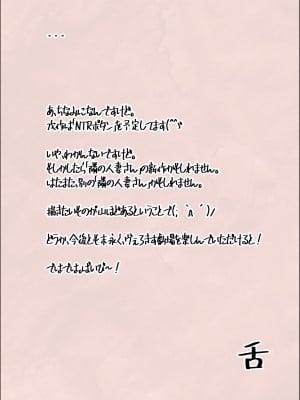 ...
あ、ちなみになんですけど。
次作は「NTRボタン」を予定してます(^^v
いや、わかんないですけど。
もしかしたら「隣の人妻さん」の新作かもしれません。
はたまた、別の「隣の人妻さん」かもしれません。
描きたいものが山ほどあるということで(; ｀ハ´)ﾉ
どうか、今後とも末永く、ヴぇろきす劇場を楽しんでいただけると！
でわでわっぱいび〜！
舌